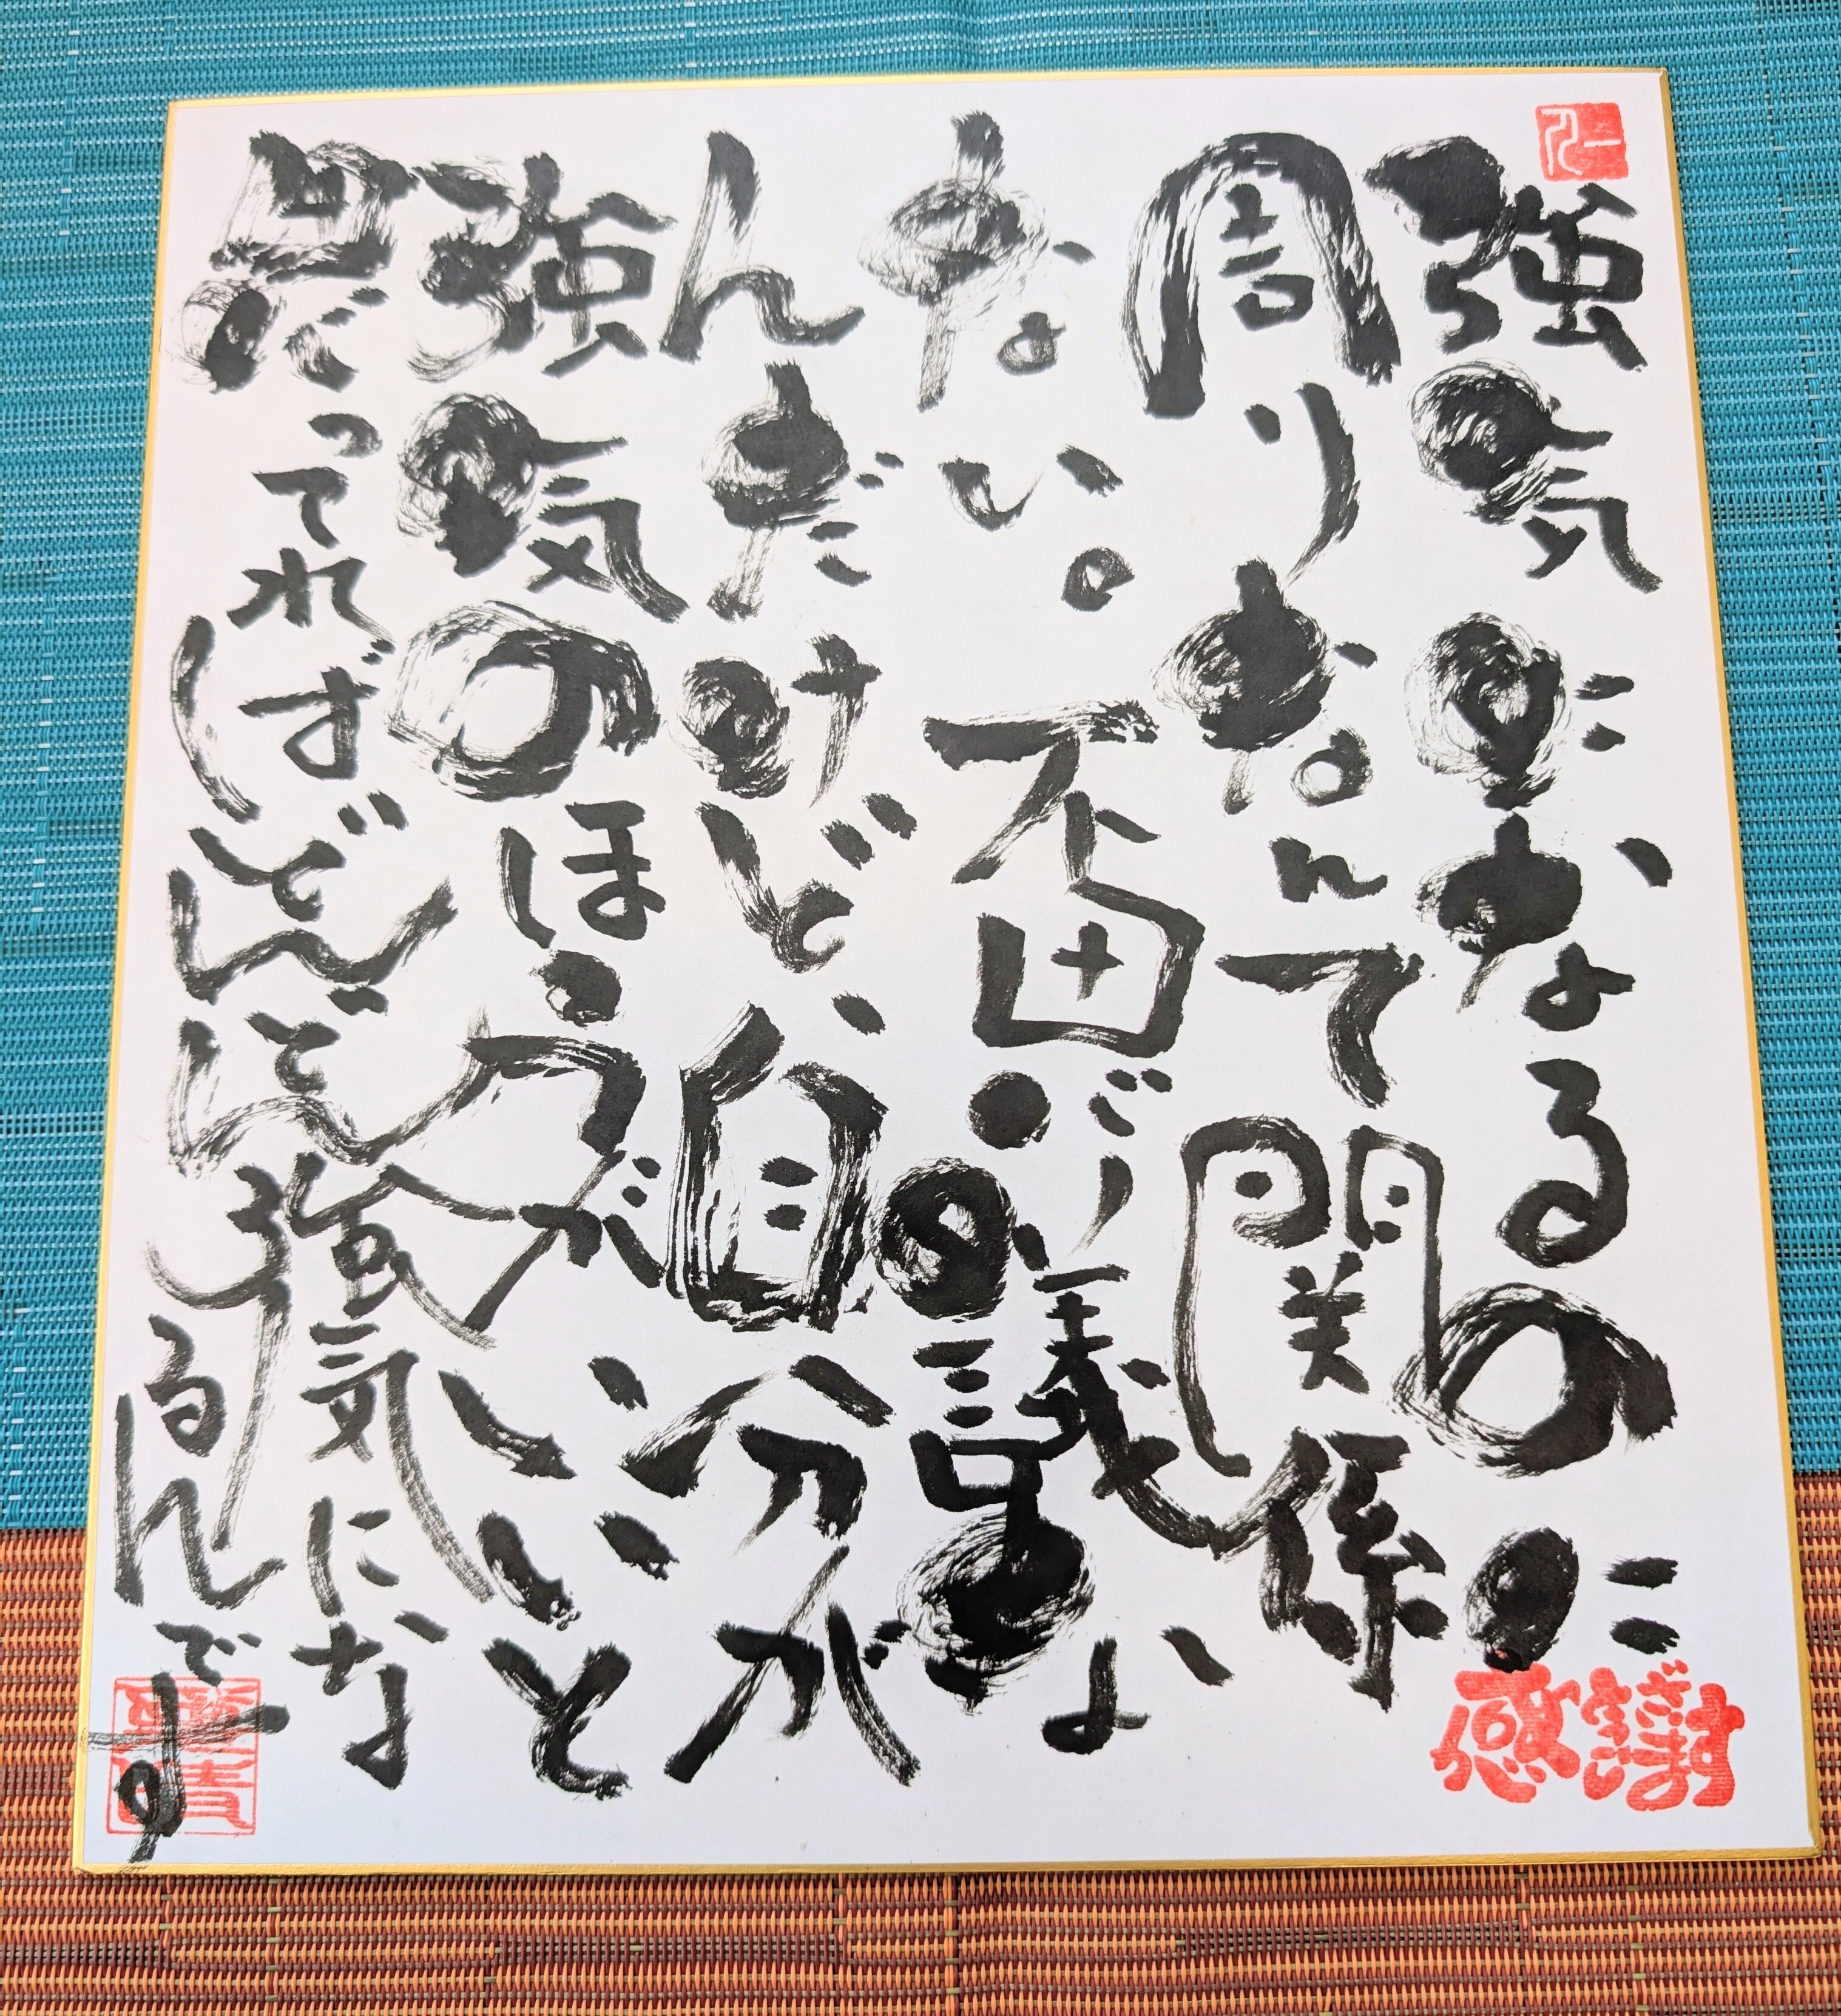 強気になるのに
周りなんて関係
ない。不思議な
んだけど、自分が
強気のほうがいいと
思ってればどんどん強気にな
るんです
感謝